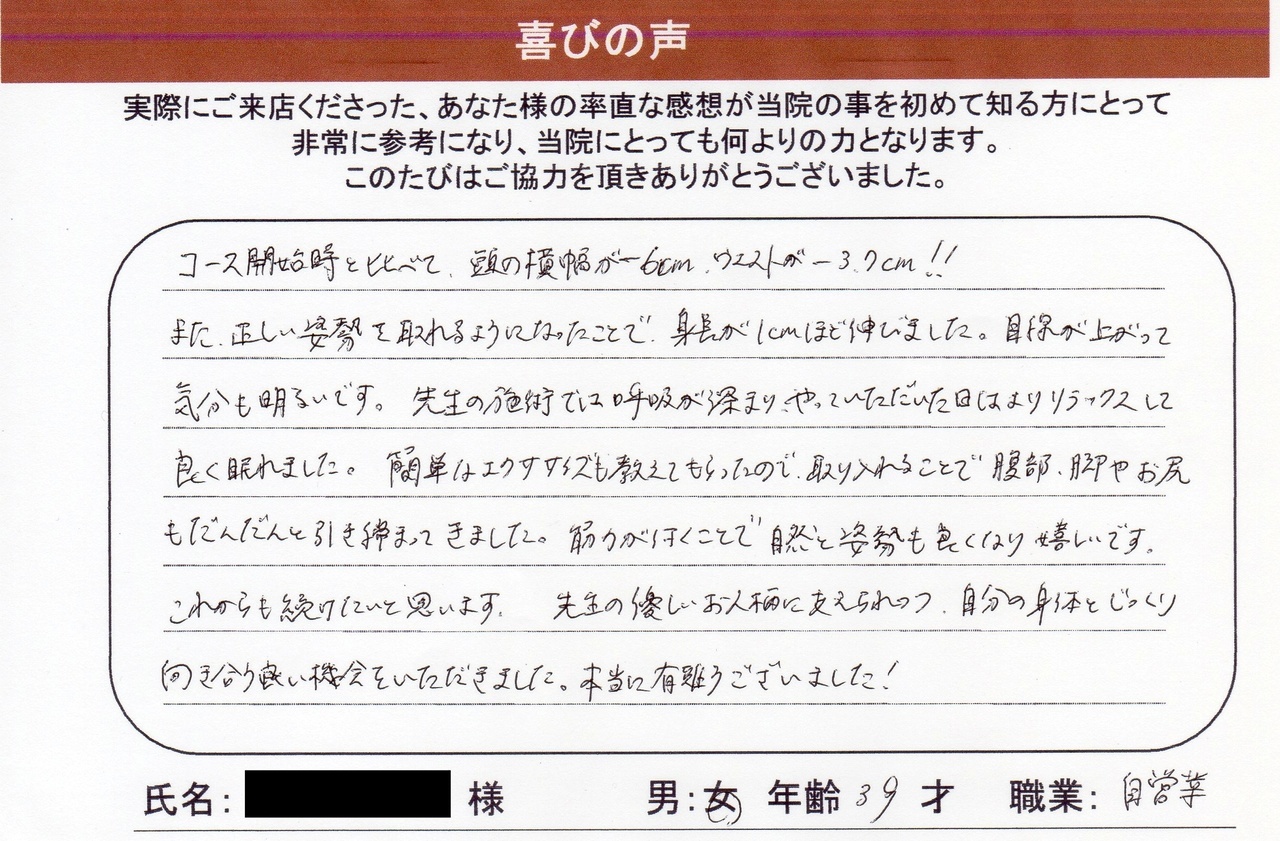 喜びの声
実際にご来店くださった、あなた様の率直な感想が当院の事を初めて知る方にとって
非常に参考になり、当院にとっても何よりの力となります。
このたびはご協力を頂きありがとうございました。
コース開始時と比べて、頭の横幅が−6cm、ウエストが−3.7cm!!
また、正しい姿勢を取れるようになったことで、身長が1cmほど伸びました。目線が上がって
気分も明るいです。先生の施術では呼吸が深まり、やっていただいた日はよりリラックスして
良く眠れました。簡単なエクササイズも教えてもらったので、取り入れることで腹部、脚やお尻
もだんだんと引き締まってきました。筋力が付くことで自然と姿勢も良くなり嬉しいです。
これからも続けたいと思います。先生の優しいお人柄に支えられつつ、自分の身体とじっくり
向き合う良い機会をいただきました。本当に有難うございました!
氏名: 様 男:女 年齢 39 才 職業: 自営業